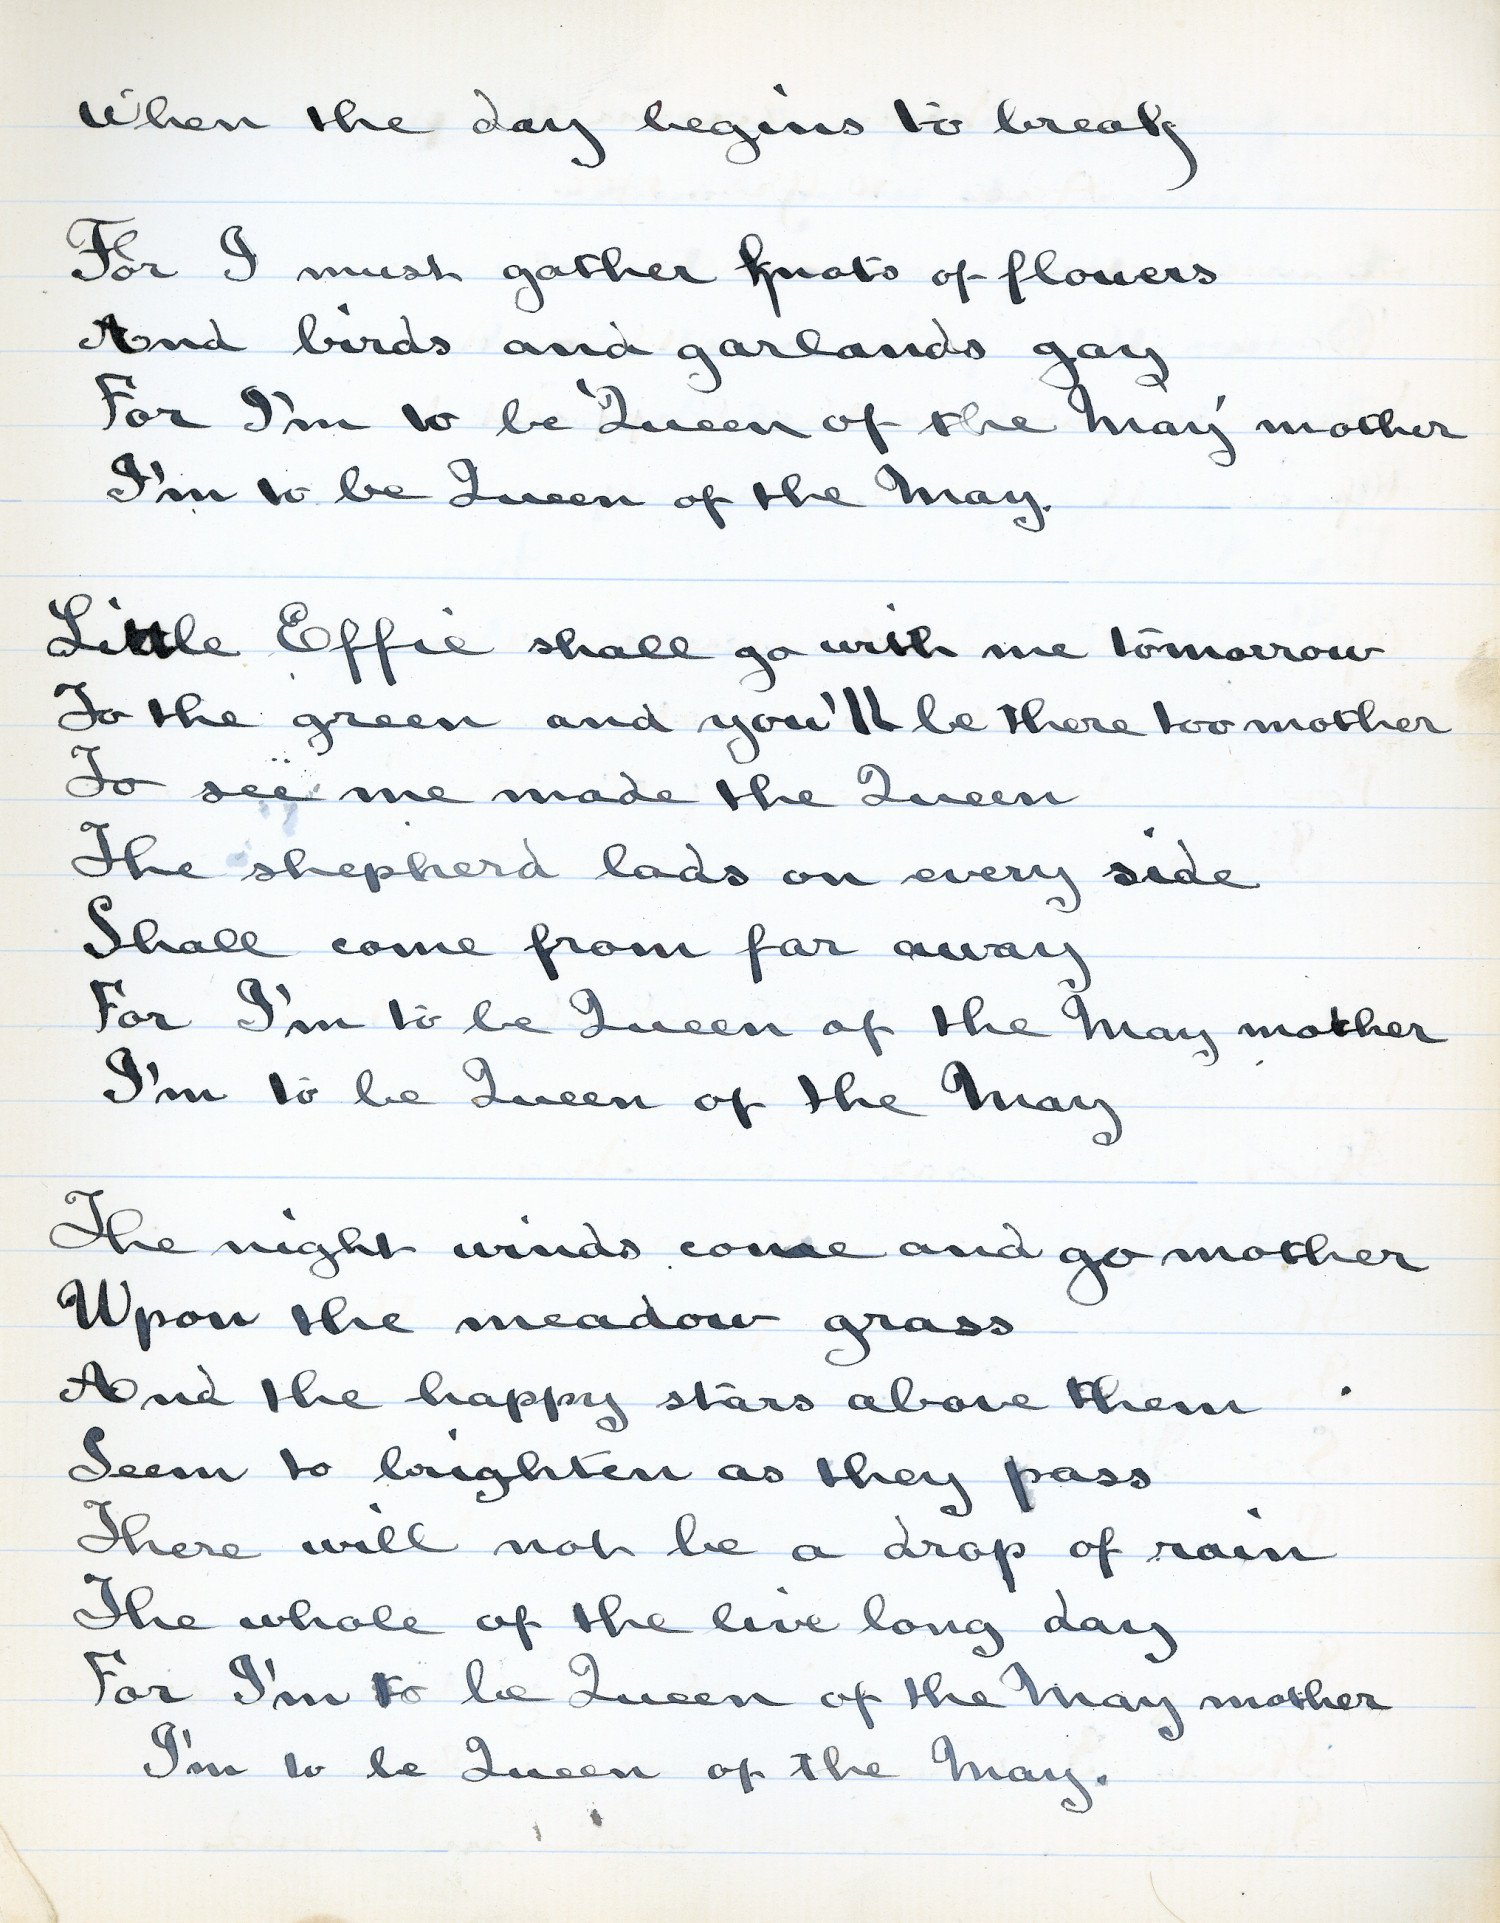 When the day begins to break
For I must gather knots of flowers
And birds and garlands gay
For I'm to be 'Queen of the May' mother
I'm to be Queen of the May.
Little Effie shall go with me tomorrow
To the green and you'll be there too mother
To see me made the Queen
The shepherd lads on every side
Shall come from far away
For I'm to be Queen of the May mother
I'm to be Queen of the May
The night winds come and go mother
Upon the meadow grass
And the happy stars above them
Seem to brighten as they pass
There will not be a drop of rain
The whole of the live long day
For I'm to be Queen of the May mother
I'm to be Queen of the May.